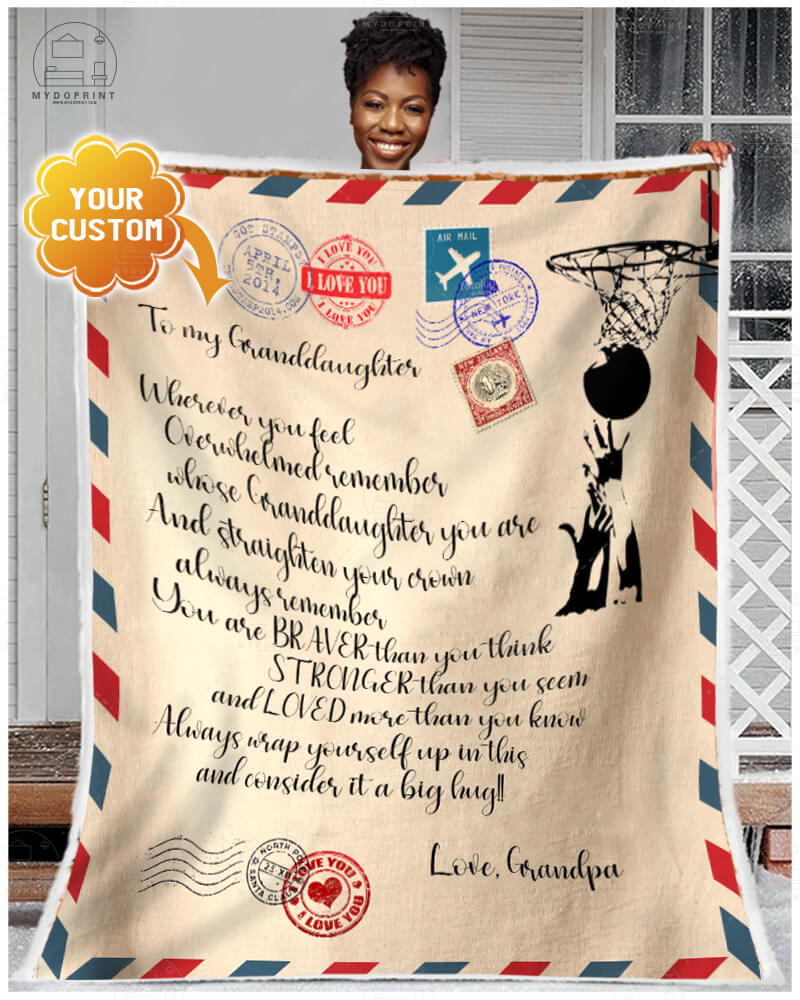 MYDOPRINT
WWW.MYDOPRINT.COM
MYDOPRINT
YOUR
CUSTOM
APRIL
5TH,
2014
I LOVE YOU
I LOVE YOU
I LOVE YOU
AIR MAIL
NEW YORK
NEW ZEALAND
To my Granddaughter
Wherever you feel
Overwhelmed remember
whose Granddaughter you are
And straighten your crown
always remember
You are BRAVER than you think
STRONGER than you seem
and LOVED more than you know
Always wrap yourself up in this
and consider it a big hug!!
Love, Grandpa
NORTH PO
SANTA CLA
I LOVE YOU
I LOVE YOU